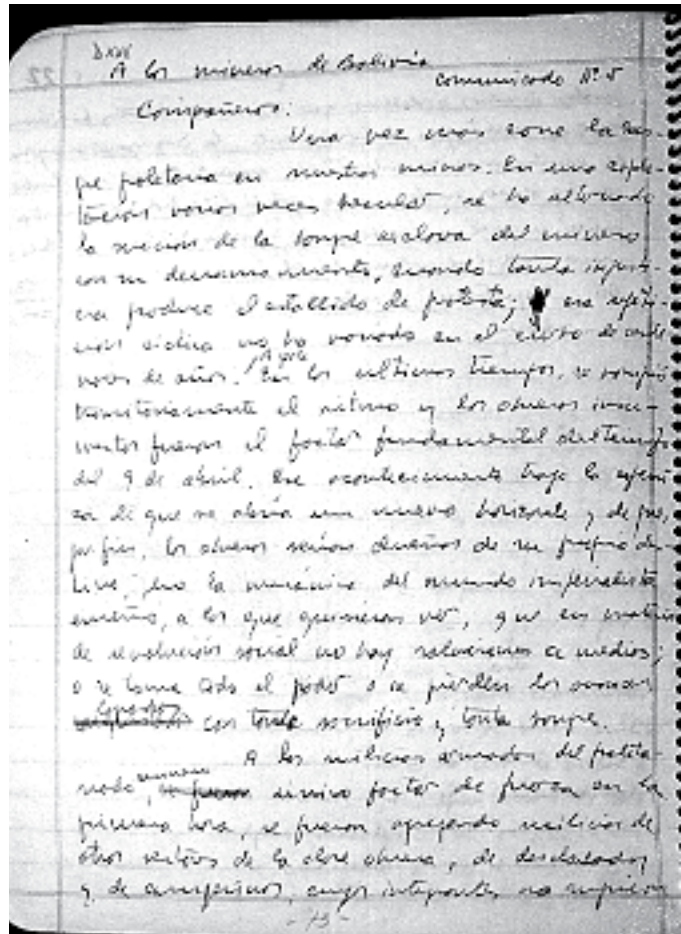 DXXV
A los mineros de Bolivia
comunicado Nº 5
Compañeros:
Una vez más corre la san-
gre proletaria en nuestras minas. En una explo-
tación varias veces secular, se ha alternado
la succión de la sangre esclava del minero
con su derramamiento, cuando tanta injusti-
cia produce el estallido de protesta; esa repeti-
ción cíclica no ha variado en el curso de cente-
nares de años.
En los últimos tiempos, se rompió
transitoriamente el ritmo y los obreros insu-
rrectos fueron el factor fundamental del triunfo
del 9 de abril. Ese acontecimiento trajo la esperan-
za de que se abría un nuevo horizonte y de que,
por fin, los obreros serían dueños de su propio des-
tino, pero la mecánica del mundo imperialista
enseñó, a los que quisieron ver, que en materia
de revolución social no hay soluciones a medias;
o se toma todo el poder o se pierden los avances
logrados con tanto sacrificio y tanta sangre.
A las milicias armadas del proleta-
riado minero, único factor de fuerza en la
primera hora, se fueron agregando milicias de
otros sectores de la clase obrera, de desclasados
y de campesinos, cuyos integrantes no supieron
- 73 -